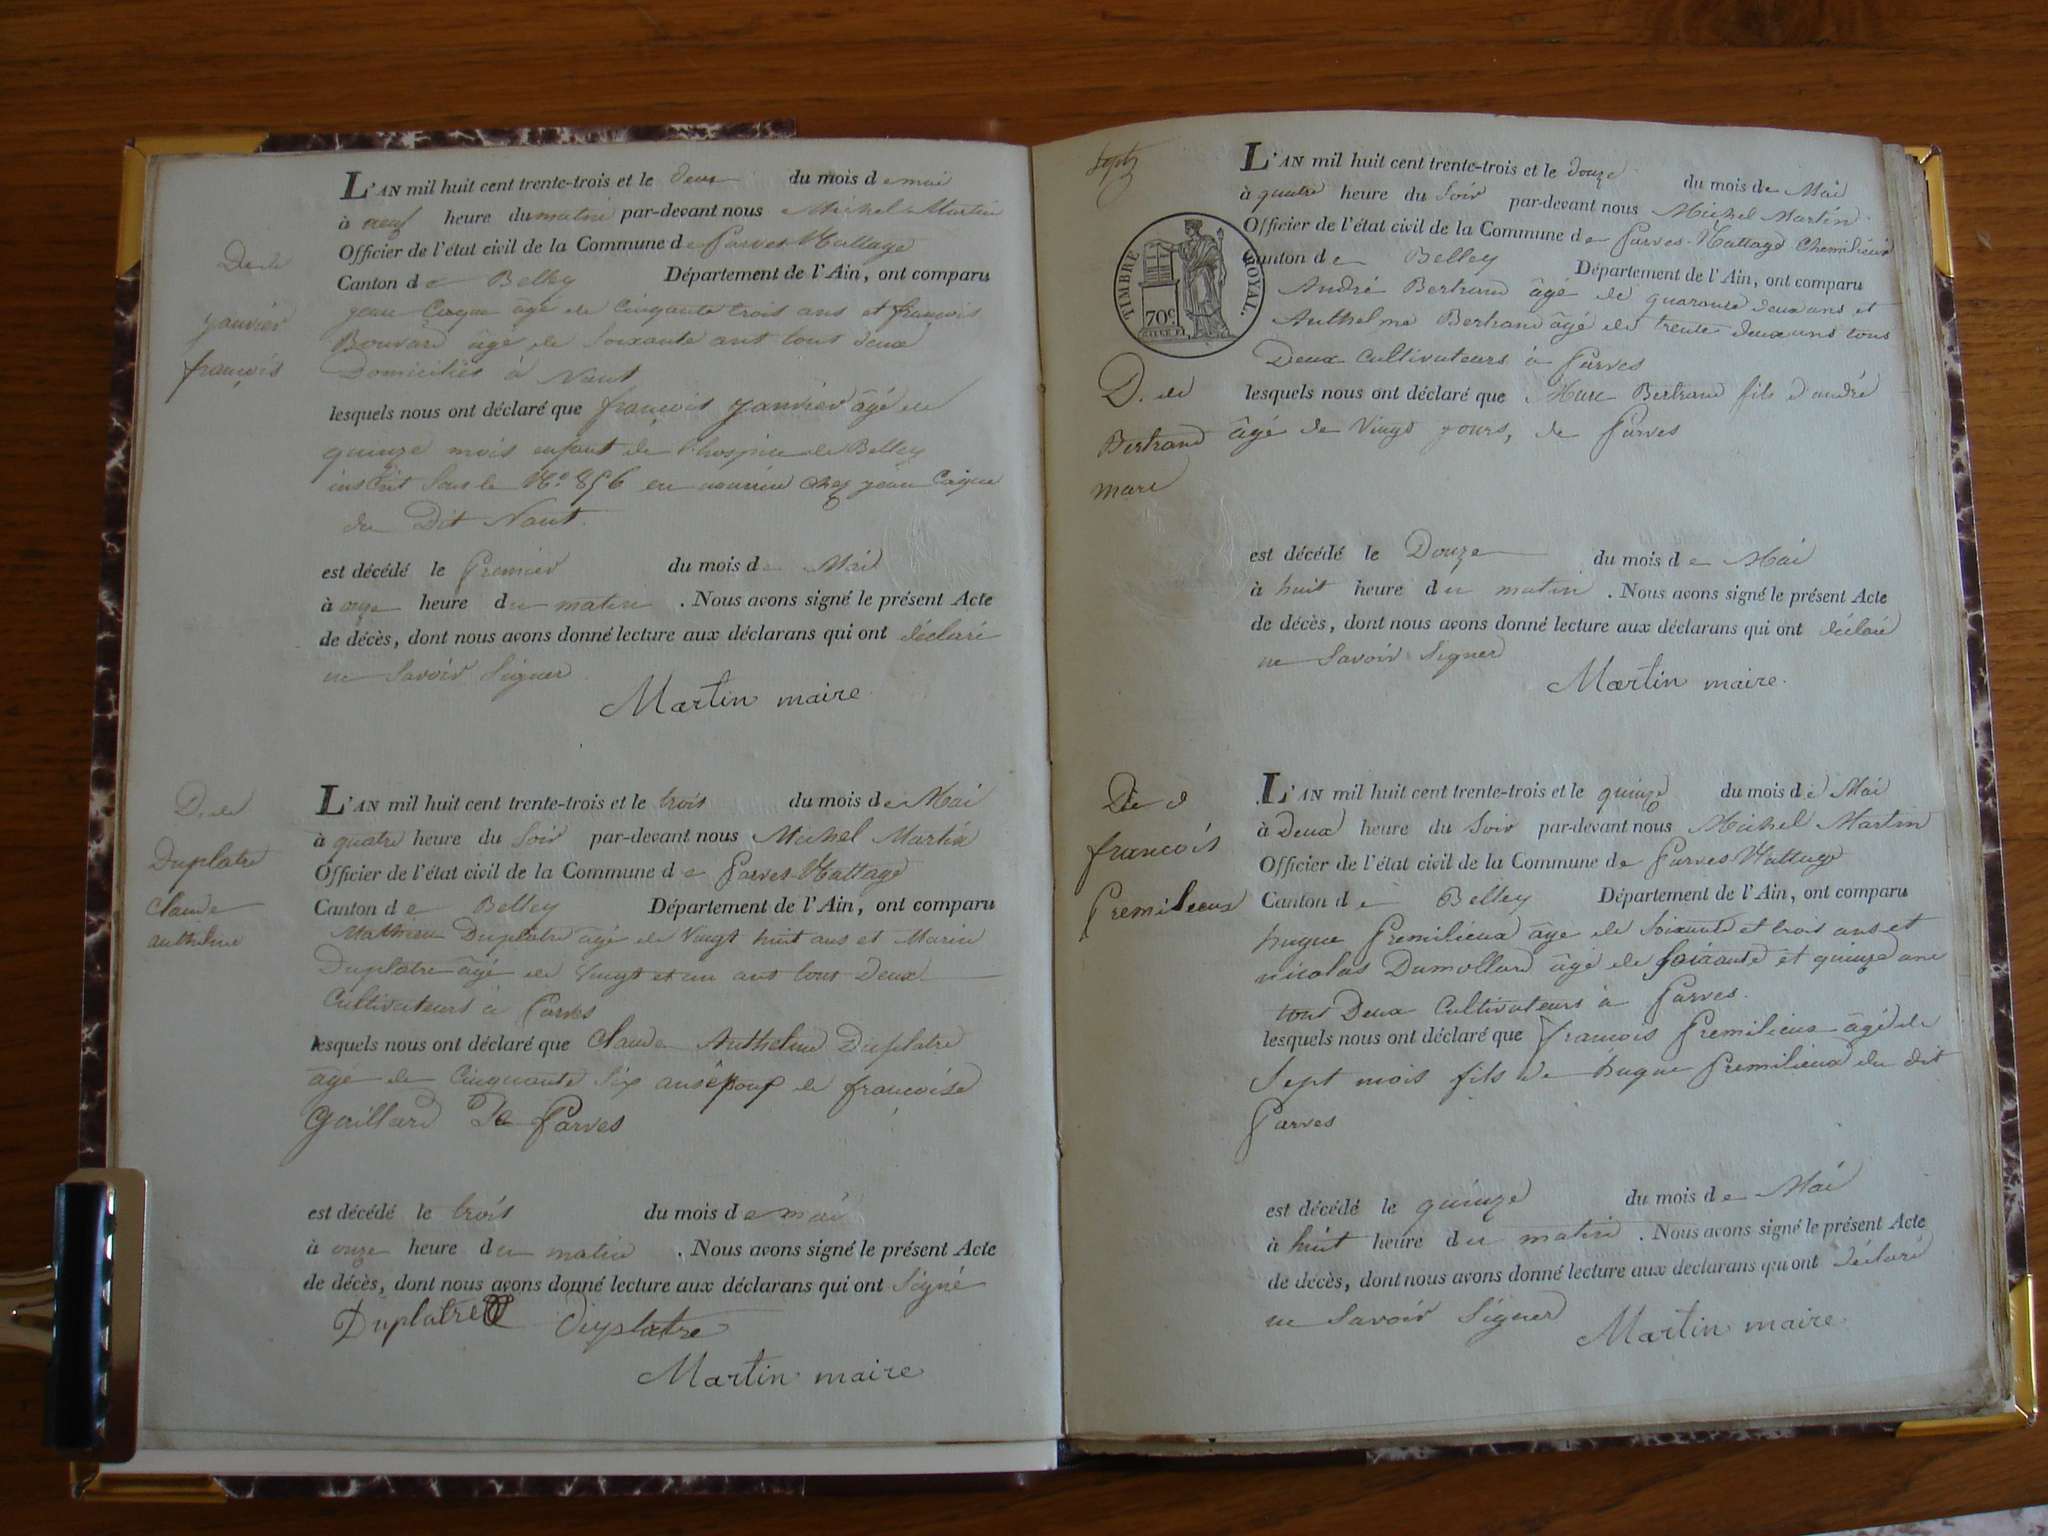 L'AN mil huit cent trente-trois et le deux du mois de mai
à neuf heure du matin par-devant nous Michel Martin
Officier de l'état civil de la Commune de Parves-Nattage
Canton de Belley Département de l'Ain, ont comparu
jean Cizque âgé de Cinquante trois ans et françois
Bouvard âgé de Soixante ans tout deux
Domiciliés à Nant
De de
janvier
françois
lesquels nous ont déclaré que françois janvier âgé de
quinze mois enfant de l'hospice de Belley
inscrit Sous le N.o 856 en nourrice chez jean
du Dit Nant.
est décédé le Premier du mois de Mai
à onze heure du matin . Nous avons signé le présent Acte
de décès, dont nous avons donné lecture aux déclarans qui ont déclaré
ne Savoir Signer
Martin maire.
D. de
Duplatre
Claude
anthelme
L'AN mil huit cent trente-trois et le trois du mois de Mai
à quatre heure du Soir par-devant nous Michel Martin
Officier de l'état civil de la Commune de Parves-Nattage
Canton de Belley Département de l'Ain, ont comparu
Mathieu Duplatre âgé de Vingt huit ans et Marin
Duplatre âgé de Vingt et un ans tout Deux
Cultivateurs à Parves
lesquels nous ont déclaré que Claude Anthelme Duplatre
âgé de Cinquante Six ans époux de françoise
Gaillard De Parves
est décédé le trois du mois de mai
à onze heure du matin . Nous avons signé le présent Acte
de décès, dont nous avons donné lecture aux déclarans qui ont Signé
Duplatre Duplatre
Martin maire
L'AN mil huit cent trente-trois et le douze du mois de Mai
à quatre heure du Soir par-devant nous Michel Martin
Officier de l'état civil de la Commune de Parves-Nattage Chemilieu
Canton de Belley Département de l'Ain, ont comparu
André Bertrand âgé de quarante deux ans et
Anthelme Bertrand âgé de trente deux ans tous
Deux Cultivateurs à Parves
TIMBRE ROYAL.
70c
D. de
Bertrand
marc
lesquels nous ont déclaré que Marc Bertrand fils d'andré
âgé de Vingt jours, de Parves
est décédé le Douze du mois de Mai
à huit heure du matin . Nous avons signé le présent Acte
de décès, dont nous avons donné lecture aux déclarans qui ont déclaré
ne Savoir Signer
Martin maire.
De d
françois
Premilieux
L'AN mil huit cent trente-trois et le quinze du mois de Mai
à Deux heure du Soir par-devant nous Michel Martin
Officier de l'état civil de la Commune de Parves-Nattage
Canton de Belley Département de l'Ain, ont comparu
hugue Premilieux âge de Soixante et trois ans et
nicolas Dumollard âgé de soixante et quinze ans
tout Deux Cultivateurs à Parves.
lesquels nous ont déclaré que francois Premilieux âgé de
Sept mois fils de hugue Premilieux du dit
Parves
est décédé le quinze du mois de Mai
à huit heure du matin . Nous avons signé le présent Acte
de décès, dont nous avons donné lecture aux declarans qui ont déclaré
ne Savoir Signer
Martin maire